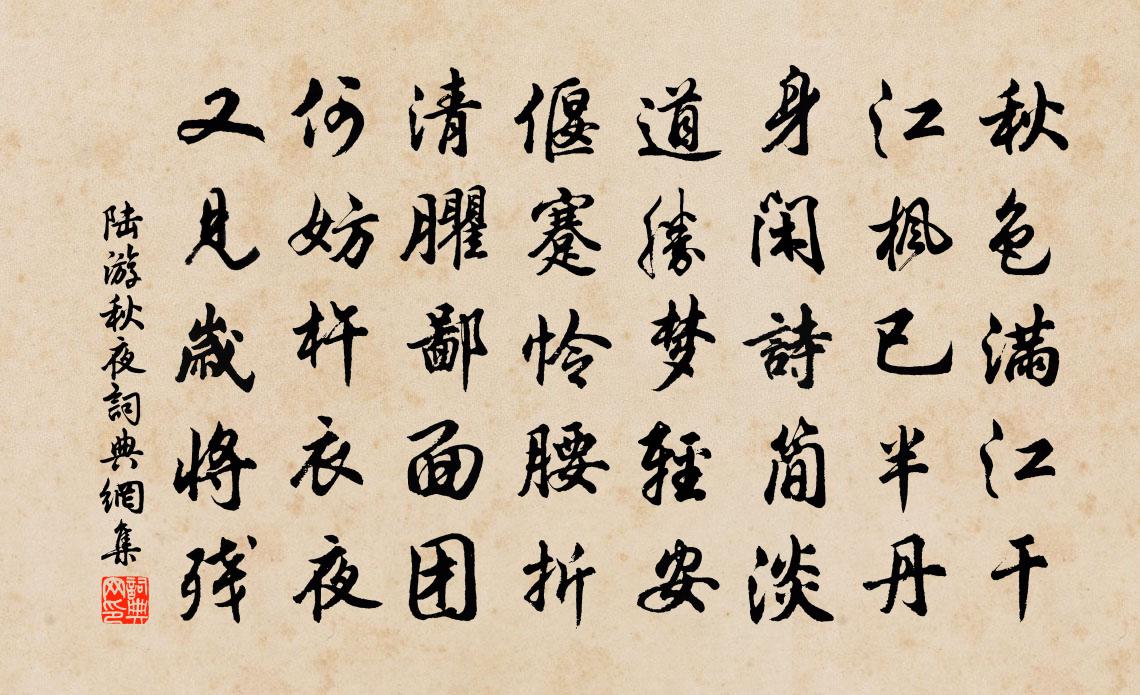 秋色滿江干
江楓已半丹
身閑詩簡淡
道勝梦輕安
偃蹇怜腰折
清臞鄙面团
何妨杵衣夜
又見歲將残
陆游秋夜詞典網集
詞典网印